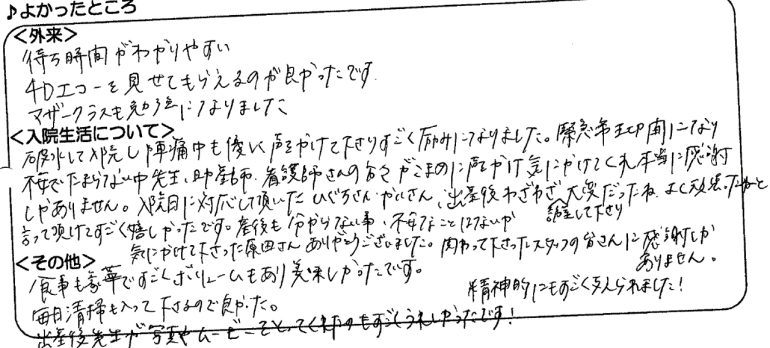 ♪よかったところ
<外来>
待ち時間がわかりやすい
4Dエコーを見せてもらえるのが良かったです。
マザークラスも勉強になりました
<入院生活について>
破水して入院し陣痛中も優しく声をかけて下さりすごく励みになりました。緊急帝王切開になり
不安でたまらない中先生、助産師、看護師さんの皆さんがこまめに声をかけ気にかけてくれ本当に感謝
しかありません。入院日に対応して頂いたひぐちさん、かいさん、出産後わざわざ大変だったね、よく頑張ったねと
訪室して下さり
言って頂けてすごく嬉しかったです。産後も分からない事、不安なことはないか
気にかけて下さった原田さんありがとうございました。関わって下さったスタッフの皆さんに感謝しか
ありません。
<その他>
食事も豪華ですごくボリュームもあり美味しかったです。
毎日清掃も入って下さるので良かった。
精神的にもすごく支えられました!
出産後先生が写真やムービーをとってくれたのもすごくうれしかったです!